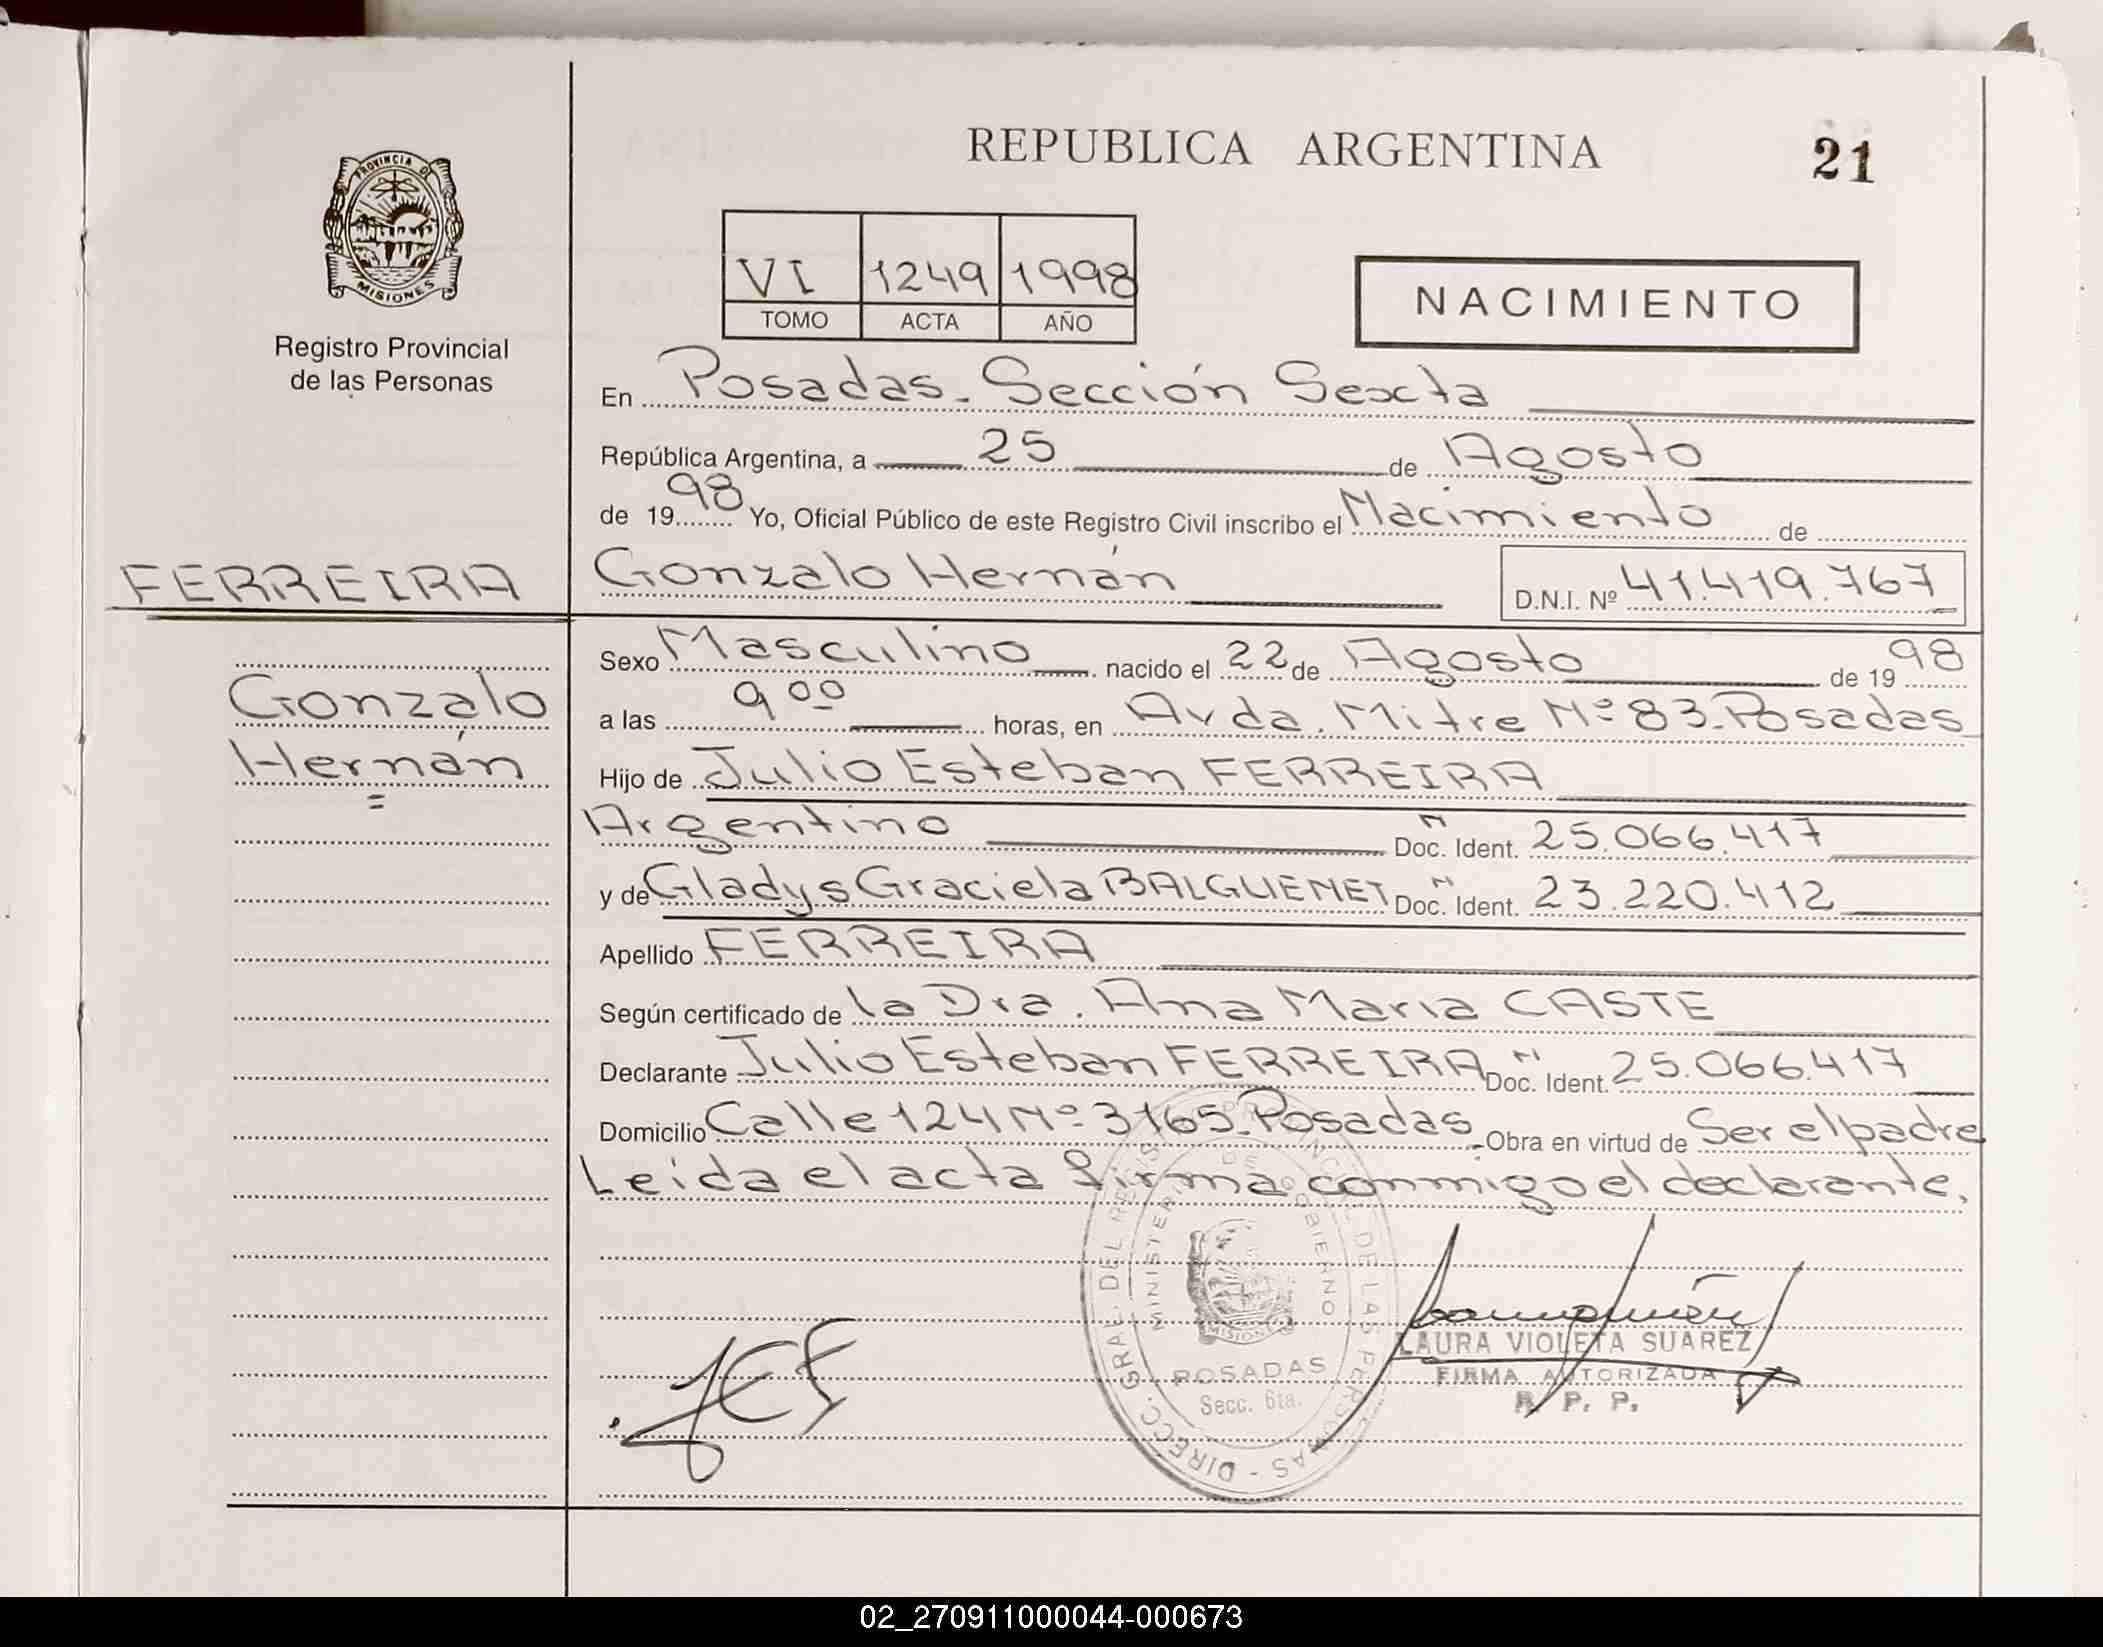 REPUBLICA ARGENTINA
21
PROVINCIA DE
MISIONES
Registro Provincial
de las Personas
VI 1249 1998
TOMO ACTA AÑO
NACIMIENTO
En Posadas. Sección Sexta
República Argentina, a 25 de Agosto
de 1998 Yo, Oficial Público de este Registro Civil inscribo el Nacimiento de
FERREIRA
Gonzalo Hernán D.N.I. Nº 41.419.767
Gonzalo
Hernán
Sexo Masculino nacido el 22 de Agosto de 1998
a las 9 00 horas, en Avda. Mitre Nº 83. Posadas
Hijo de Julio Esteban FERREIRA
Argentino Doc. N Ident. 25.066.417
y de Gladys Graciela BALGUENET Doc. N Ident. 23.220.412
Apellido FERREIRA
Según certificado de la Dra. Ana Maria CASTE
Declarante Julio Esteban FERREIRA Doc. N Ident. 25.066.417
Domicilio Calle 124 Nº 3165. Posadas. Obra en virtud de Ser el padre
Leída el acta firma conmigo el declarante.
DIRECC. GRAL. DEL REGIST. PROVINCIAL DE LAS PERSONAS
MINISTERIO DE GOBIERNO
MISIONES
POSADAS
Secc. 6ta.
JEF
LAURA VIOLETA SUAREZ
FIRMA AUTORIZADA
R. P. P.
02_270911000044-000673